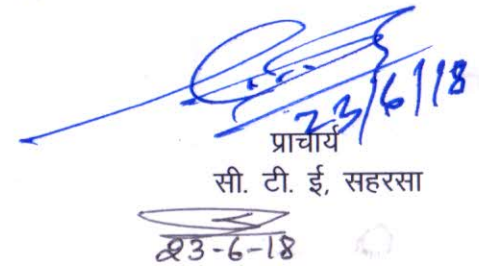 23/6/18
प्राचार्य
सी. टी. ई, सहरसा
23-6-18